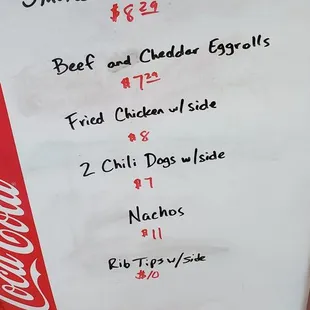 $8.29
Beef and Cheddar Eggrolls
$7.29
Fried Chicken w/side
$8
2 Chili Dogs w/side
$7
Nachos
$11
Rib Tips w/side
$10
Coca-Cola